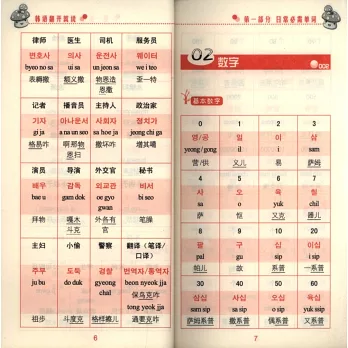 韩语翻开就说
律师 医生 司机 服务员
변호사 의사 운전사 웨이터
byeo no sa ui sa un jeon sa we i teo
表耨撒 额义撒 物恩造恩撒 歪一特
记者 播音员 主持人 政治家
기자 아나운서 사회자 정치가
gi ja a na un seo sa hoe ja jeong chi ga
格易咋 撒坏咋 增其嘎
演员 导演 外交官 秘书
배우 감독 외교관 비서
bae u gam dok oe gyo gwan bi seo
拜物 嘎木斗克 笔操
主妇 小偷 警察 翻译（笔译/口译）
주부 도둑 경찰 번역자/통역자
ju bu do duk gyeong chal beon nyeok jja
tong yeok jja
祖步 斗度克 通要克咋
6
第一部分 日常必需单词
02 数字
002
基本数字
0 1 2 3
영/공 일 이 삼
yeong/gong il i sam
营/供 义儿 易 萨姆
4 5 6 7
사 오 육 칠
sa o yuk chil
萨 恼 又克 七儿
8 9 10 20
팔 구 십 이십
pal gu sip i sip
帕儿 故 系普 一系普
30 40 50 60
삼십 사십 오십 육십
sam sip sa sip o sip yuk sip
萨姆系普 撒系普 偶系普 又克系普
7